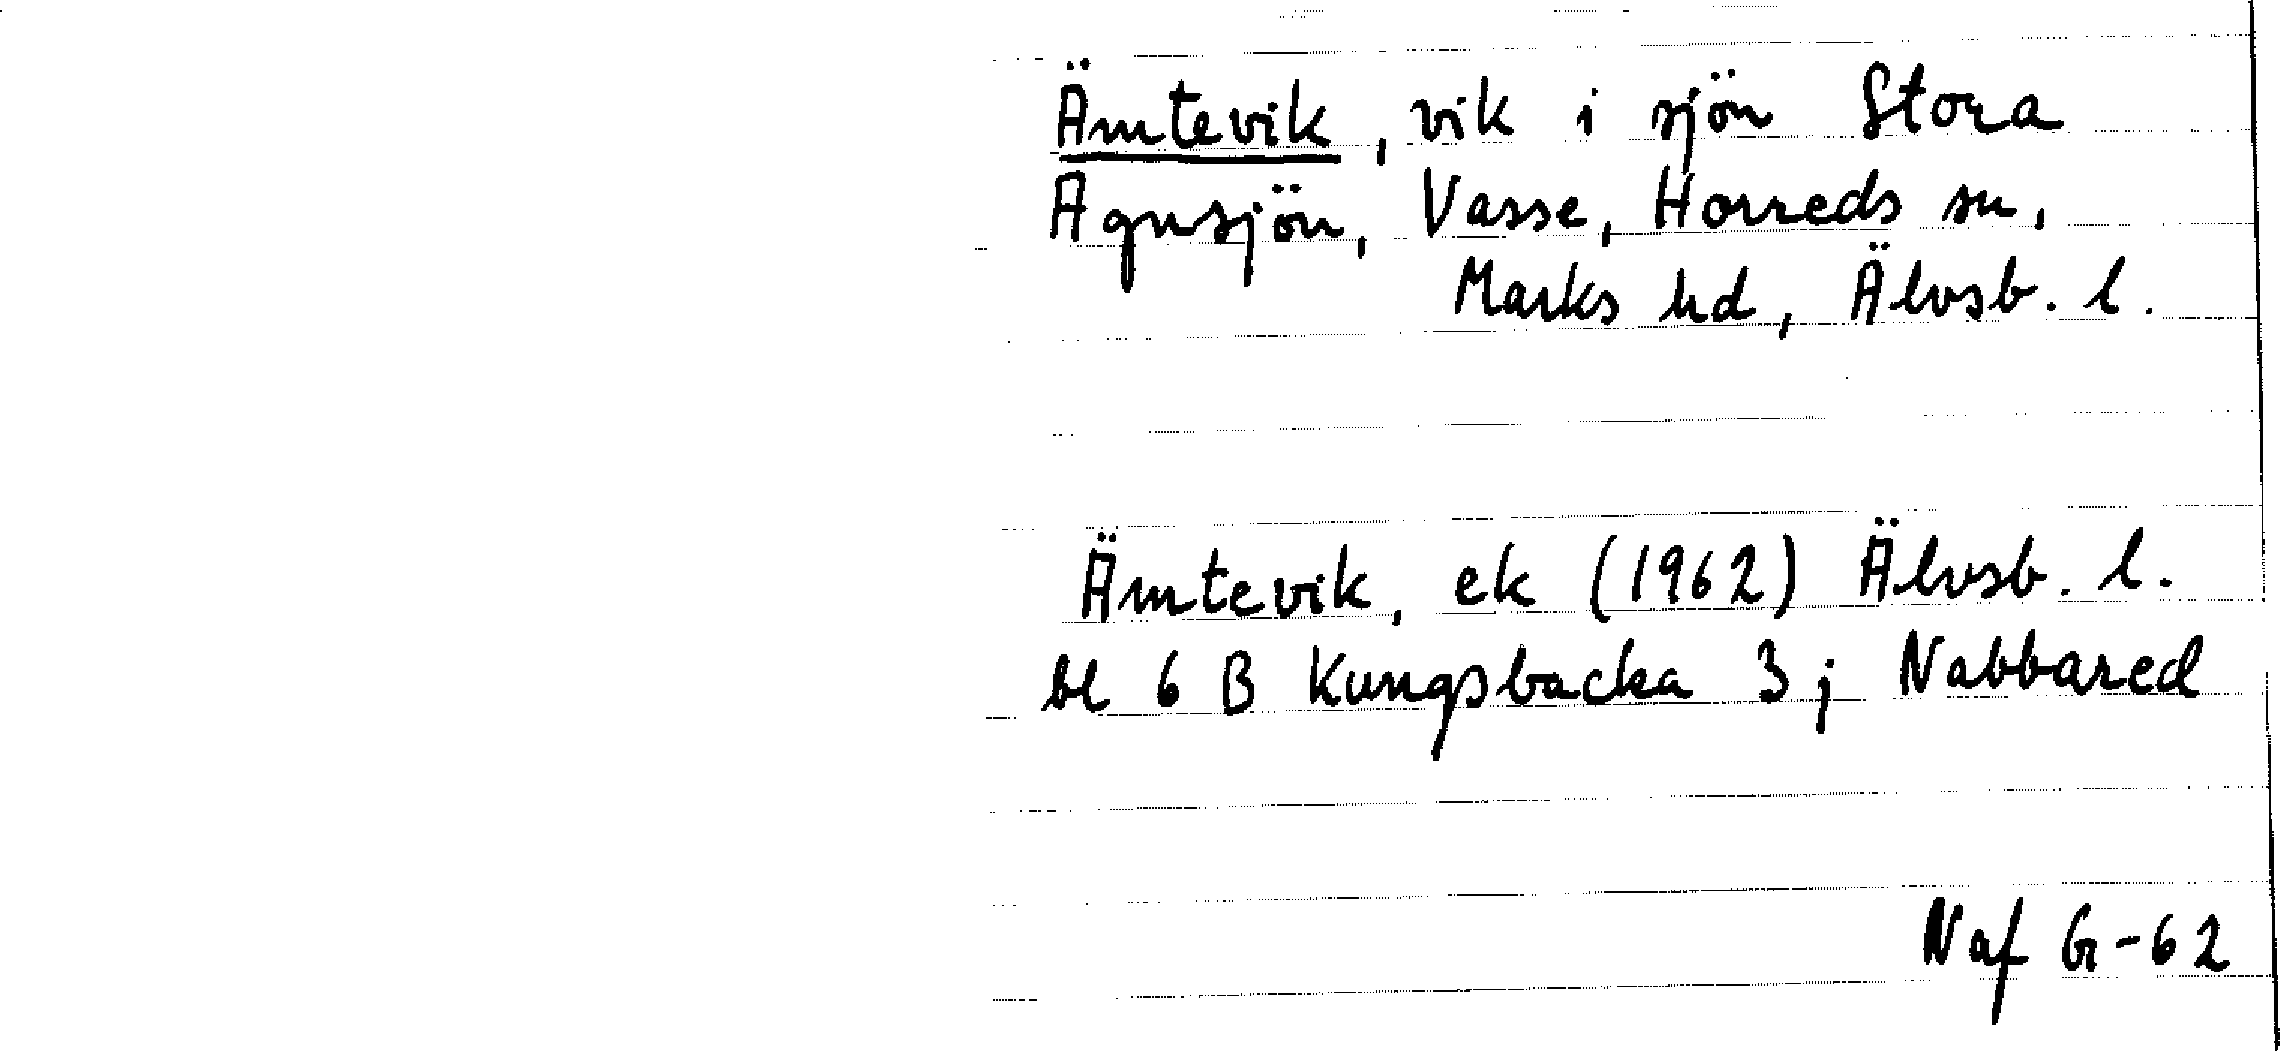 Ämtevik, vik i sjön Stora
Agnsjön, Vasse, Horreds sn,
Marks hd, Älvsb. l.
Ämtevik, ek (1962) Älvsb. l.
bl 6 B Kungsbacka 3 j Nabbared
Naf G-62